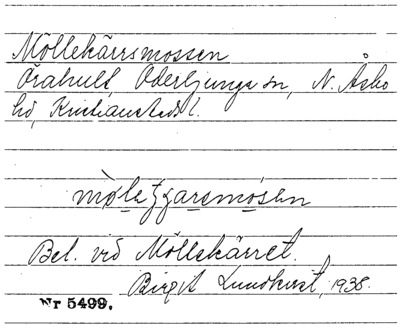 Möllekärrsmossen
Örahult, Oderljunga sn, N. Åsbo
hd, Kristianstads l.
Bel. vid Möllekärret.
Birgit Lundkvist, 1938.
Nr 5499.